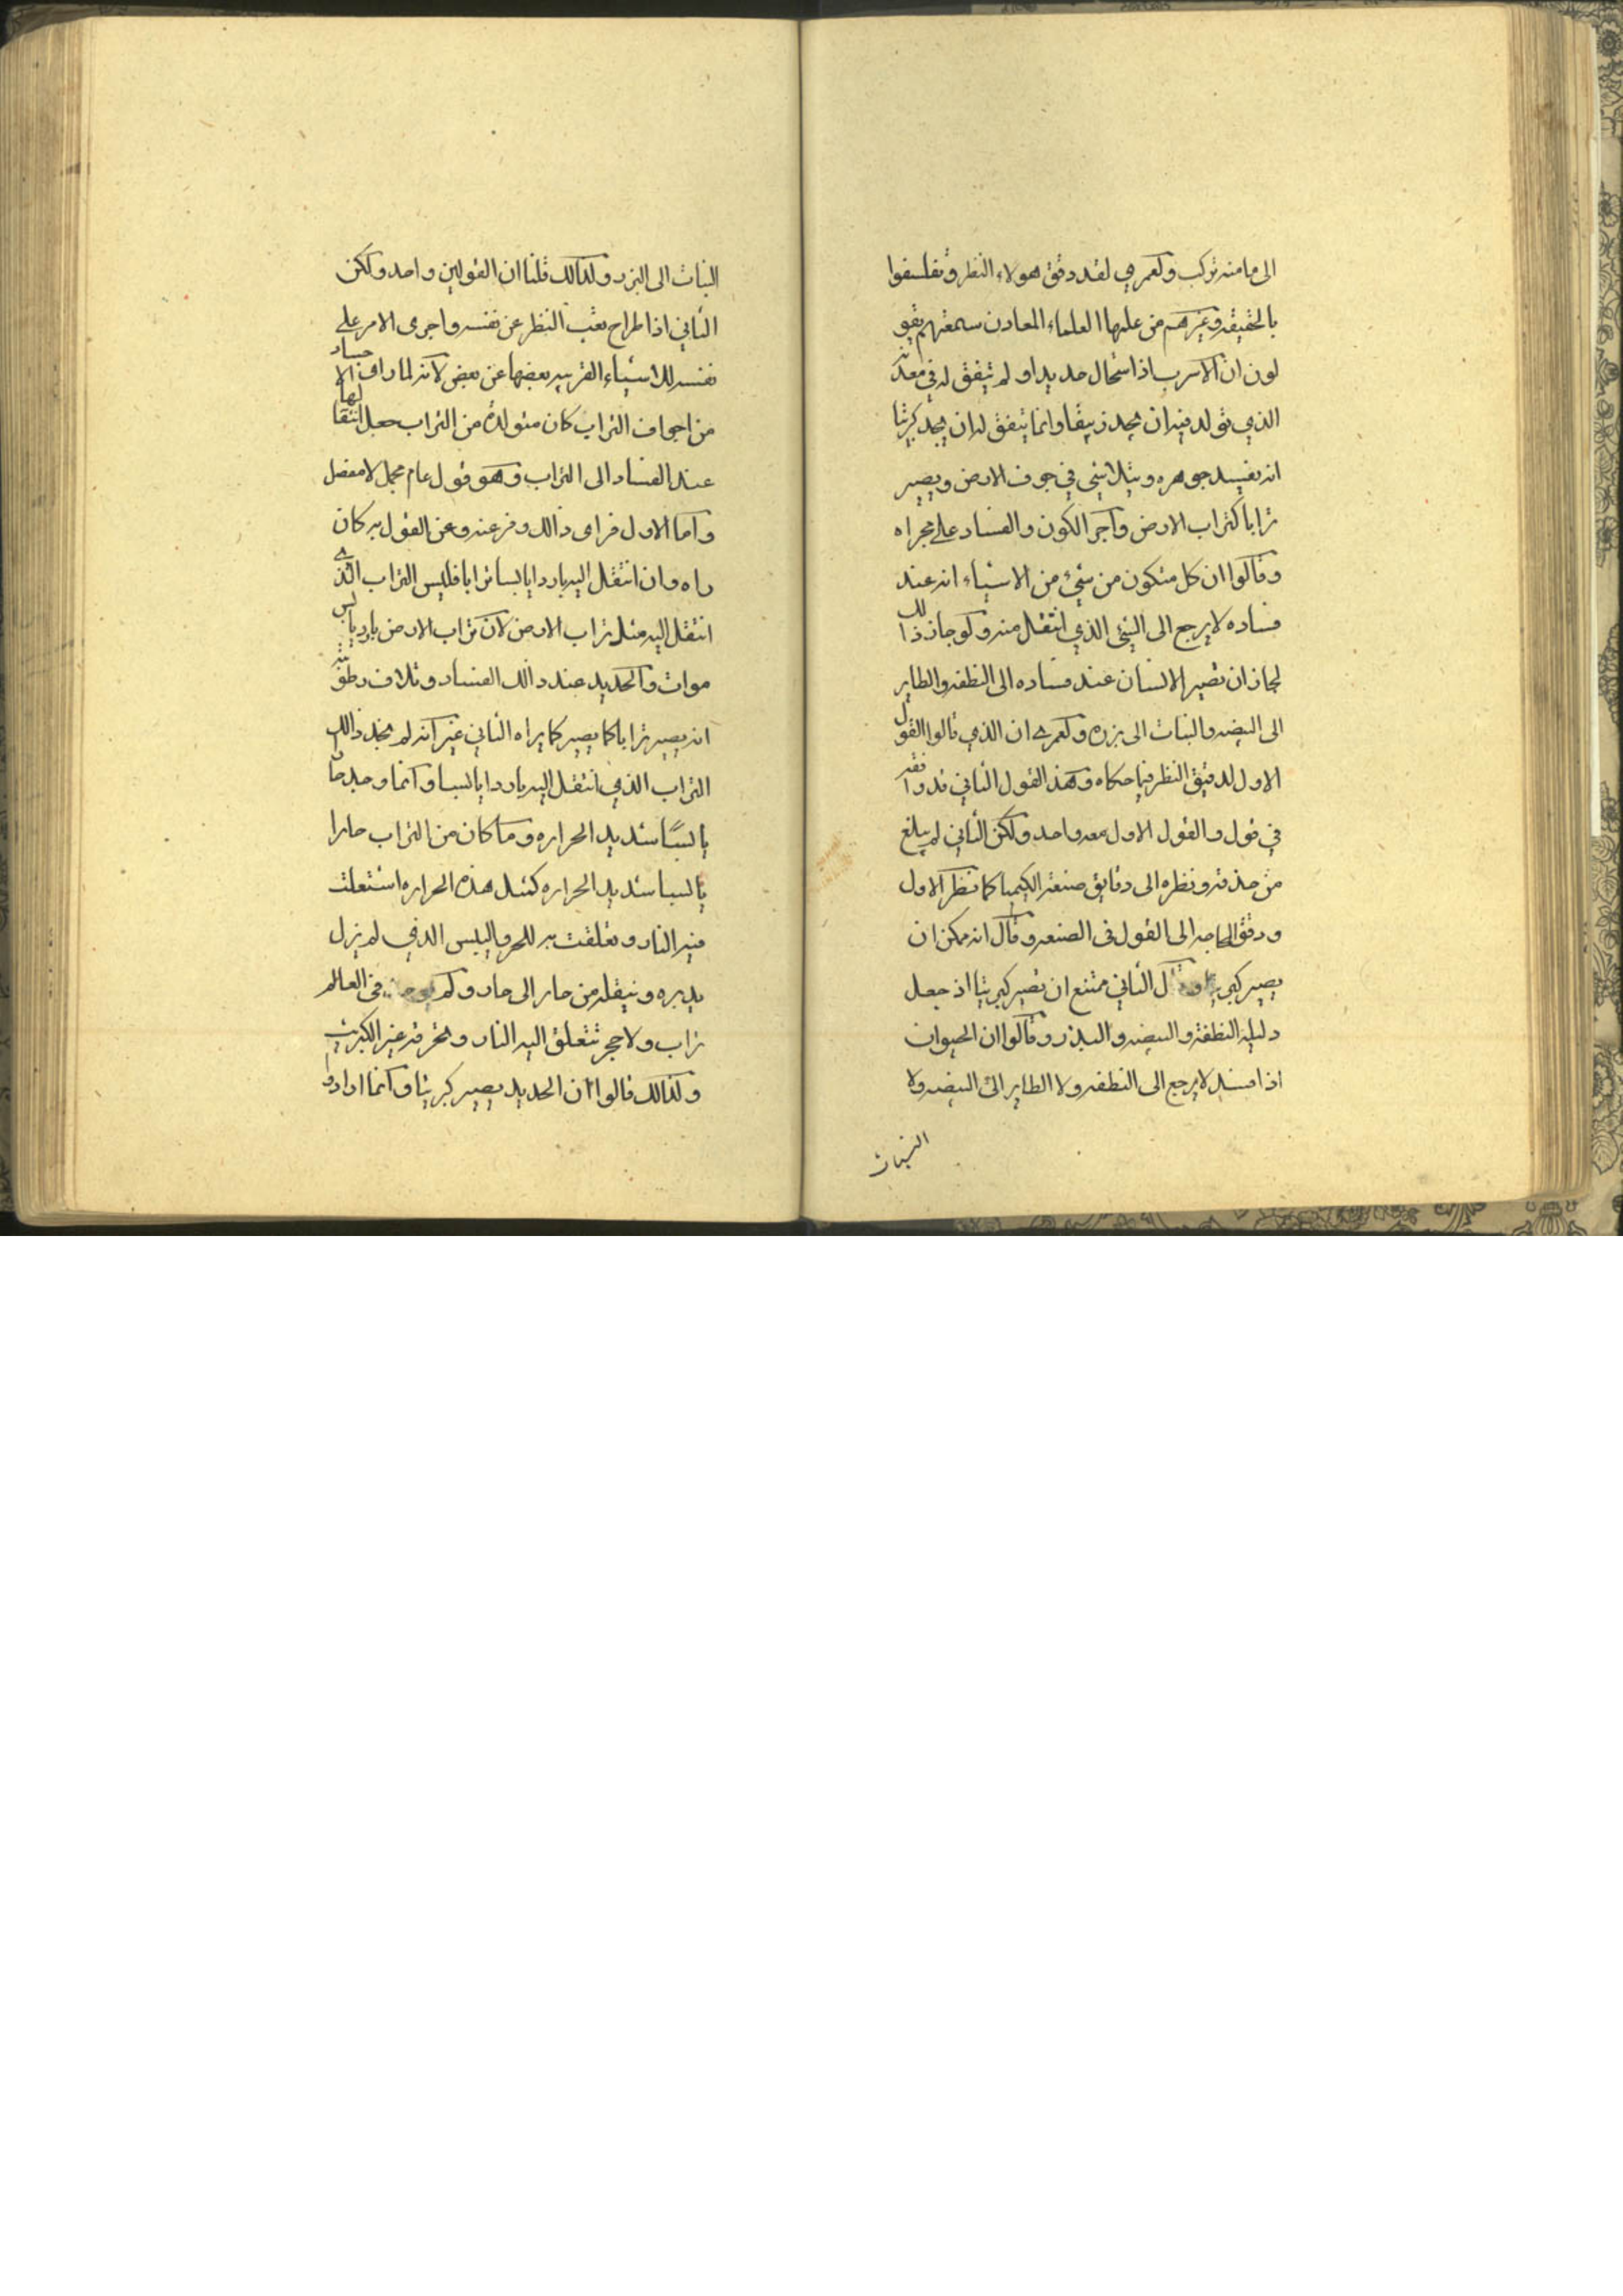 الى ما منه تركب ولعمري لقد دقق هولاء النظر وتفلسفوا
بالحقيقه وغيرهم من علماء العلماء المعادن سمعتهم يقو
لون ان الاسرب اذا استحال حديدا ولم يتفق له في معدنه
الذي تولد فيه ان يجد زيبقا وانما يتفق له ان يجد كبريتا
انه يفسد جوهره ويتلاشى في جوف الارض ويصير
ترابا كتراب الارض واجر الكون والفساد على مجراه
وقالوا ان كل متكون من شيء من الاشياء انه عند
فساده لا يرجع الى الشيء الذي انتقل منه ولو جاز ذالك
لجاز ان تصير الانسان عند فساده الى النطفه والطاير
الى البيضه والنبات الى بزره ولعمرى ان الذي قالوا القول
الاول لدقيق النظر فيما حكاه وهذا القول الثاني قد وافقه
في قول والقول الاول معه واحد ولكن الثاني لم يبلغ
من حذقه ونظره الى دقايق صنعة الكيميا كما نظر الاول
ودقق الحاجه الى القول فى الصنعه وقال انه ممكن ان
يصير كبريتا وقال الثاني ممتنع ان تصير كبريتا اذ جعل
دليله النطفة والبيضه والبذر وقالوا ان الحيوان
اذا فسد لا يرجع الى النطفه ولا الطاير الى البيضه ولا
النبات
النبات الى البزر ولذالك قلنا ان القولين واحد ولكن
الثاني اذا طراح تعب النظر عن نفسه واجرى الامر على
نفسه للاشياء القريبه بعضها عن بعض لانه لما راى الاجساد
من اجواف التراب كان متولدة من التراب جعل انتقالها
عند الفساد الى التراب وهو قول عام مجمل لا مفصل
واما الاول فراى ذالك وفر عنه وعن القول به كان
راه وان انتقل اليه باردا يابسا ترابا فليس التراب الذى
انتقل اليه مثل تراب الارض لان تراب الارض بارد يابس
موات والحديد عند ذالك الفساد وتلاف رطوبته
انه يصير ترابا كما يصير كما يراه الثاني غير انه لم يجد ذالك
التراب الذي انتقل اليه باردا يابسا وانما وجد حارا
يابسًا شديد الحراره وما كان من التراب حارا
يابسا شديد الحراره كمثل هذه الحراره اشتعلت
فيه النار وتعلقت به للحر واليبس الذي لم يزل
يدبره وينقله من حار الى حار ولم في العالم
تراب ولا حجر تتعلق اليه النار وتحرقه غير الكبريت
ولذالك قالوا ان الحديد يصير كبريتا وانما ارادوا